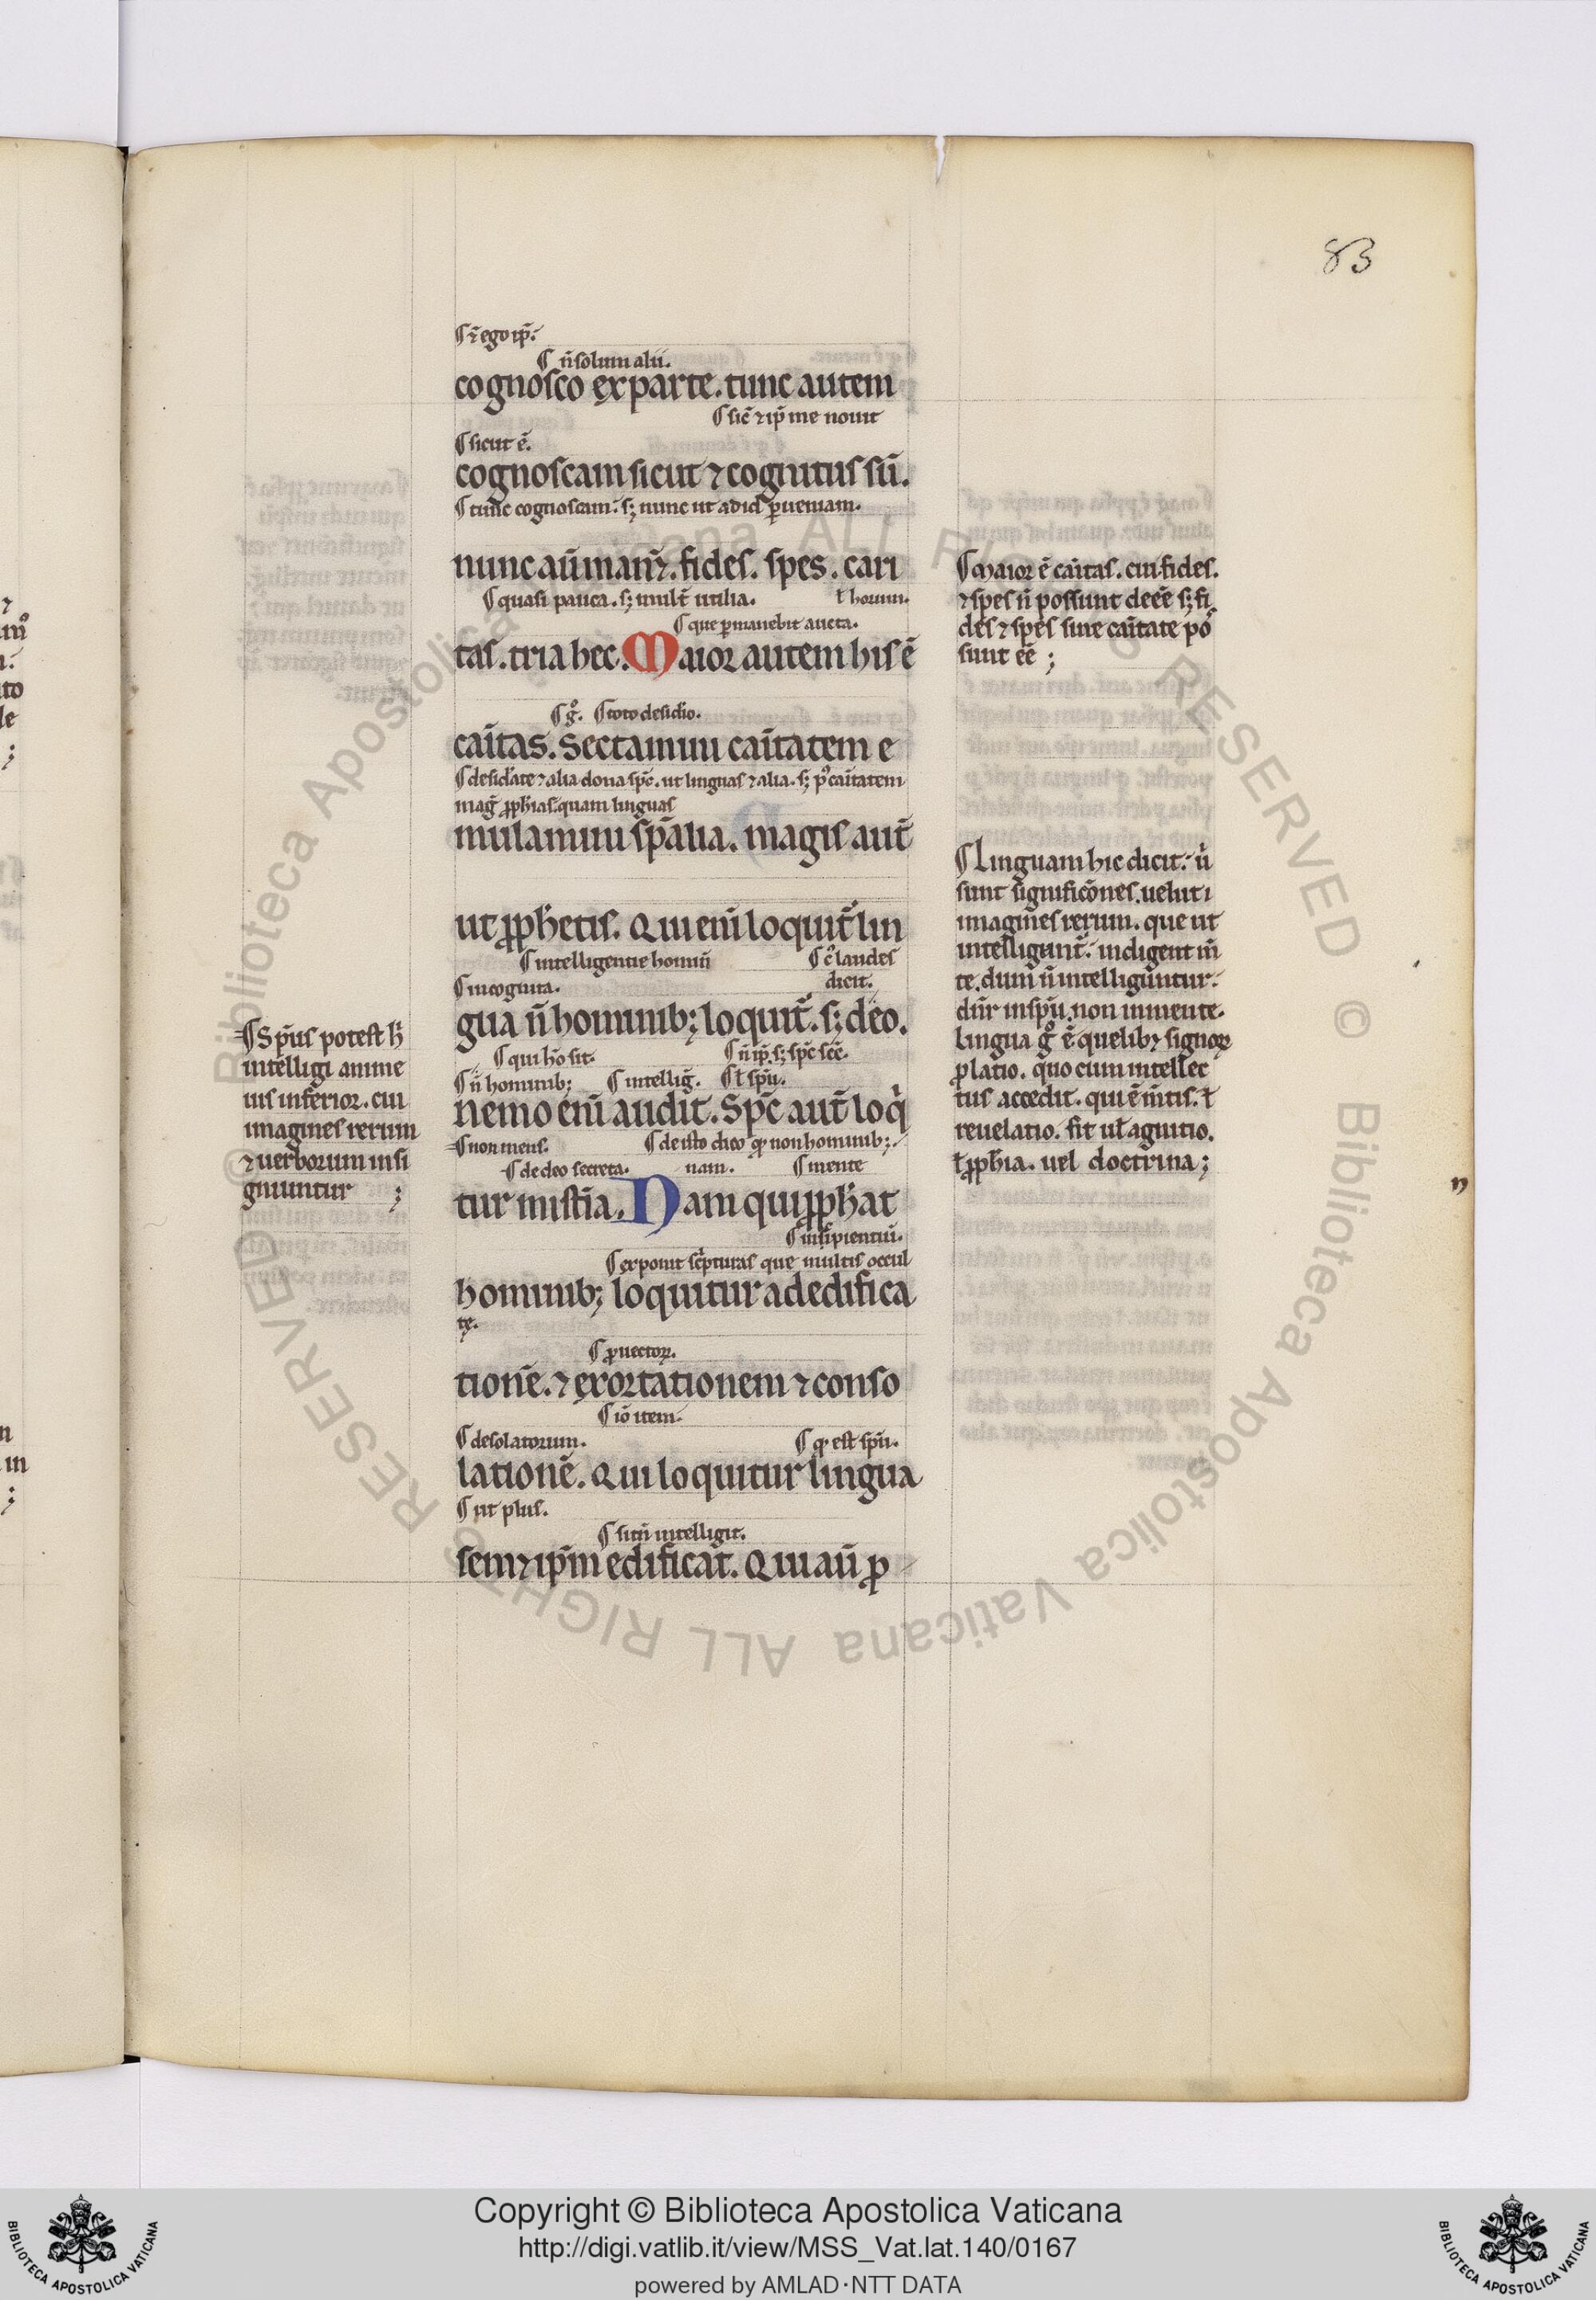 83
¶ ⁊̄ ego ip̄.
¶ n̄ solum alii.
cognosco ex parte. tunc autem
¶ sic̄ ⁊ ip̄ me nouit
¶ sicut ē.
cognoscam sicut ⁊ cognitus sū.
¶ tunc cognoscam. sꝫ nunc ut ad id ꝑueniam.
nunc aū man⁊̄. fides. spes. cari
¶ quasi pauca. sꝫ mult̄ utilia. ł horum.
¶ que ꝑmanebit aucta.
tas. tria hec. Maior autem his ē
¶ gͦ. ¶ toto desid̓io.
cai̅tas. Sectamini cai̅tatem e
¶ desid̓ate ⁊ alia dona sp̄c. ut linguas ⁊ alia. sꝫ pͦ cai̅tatem
maḡ ꝓph̄ias. quam linguas
mulamini sp̄alia. magis aut̄
ut ꝓph̄etis. Qui eni̅ loquit̄ lin
¶ intelligentie hominū ¶ c̄ laudes
¶ incognita. dicit.
gua n̄ hominibꝫ loquit̄. sꝫ deo.
¶ qui h̄o sit. ¶ n̄ ip̄. sꝫ sp̄c sc̄c.
¶ n̄ hominibꝫ ¶ intelliḡ. ¶ ł sp̄u.
nemo eni̅ audit. Sp̄c aut̄ loqͥ
¶ non mens. ¶ de isto dico ꝙ non hominibꝫ.
¶ de deo secreta. nam. ¶ mente
tur mist̄ia. Nam qui ꝓph̄at
¶ insipientiū.
¶ exponit sc̄pturas que multis occul
hominibꝫ loquitur ad edifica
tę.
¶ ꝓuectoꝝ.
tionē. ⁊ exortationem ⁊ conso
¶ iō item.
¶ desolatorum. ¶ ꝙ est sp̄u.
lationē. Qui loquitur lingua
¶ ut plus.
¶ si tn̄ intelligit.
sem⁊ip̄m edificat̄. Qui aū ꝓ
¶ Sp̄us potest h̄
intelligi anime
uis inferior. cui
imagines rerum
⁊ uerborum insi
gniuntur ;
¶ Maior ē cai̅tas. cui fides.
⁊ spes n̄ possunt deēē sꝫ fi
des ⁊ spes sine cai̅tate pō
sunt ēē ;
¶ Linguam hic dicit. uͥ
sunt significōnes. ueluti
imagines rerum. que ut
intelligant̄. indigent m̄
te. dum n̄ intelliguntur.
dn̄r in sp̄u. non in mente.
Lingua gͦ ē quelibꝫ signoꝝ
ꝓlatio. quo cum intellec
tus accedit. qui ē m̄tis. ł
reuelatio. fit uł agnitio.
ł ꝓph̄ia. uel doctrina ;
Copyright © Biblioteca Apostolica Vaticana
http://digi.vatlib.it/view/MSS_Vat.lat.140/0167
powered by AMLAD·NTT DATA